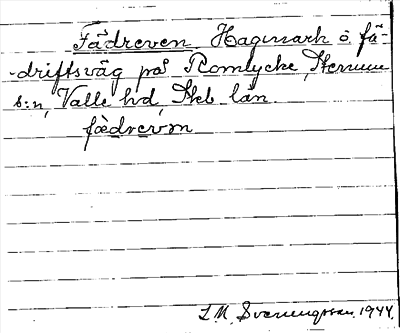 Fädreven Hagmark o. fä-
driftsväg på Romlycke, Stenum
s:n, Valle hd, Skb län.
fädrevm
L. M. Svenungsson 1944.